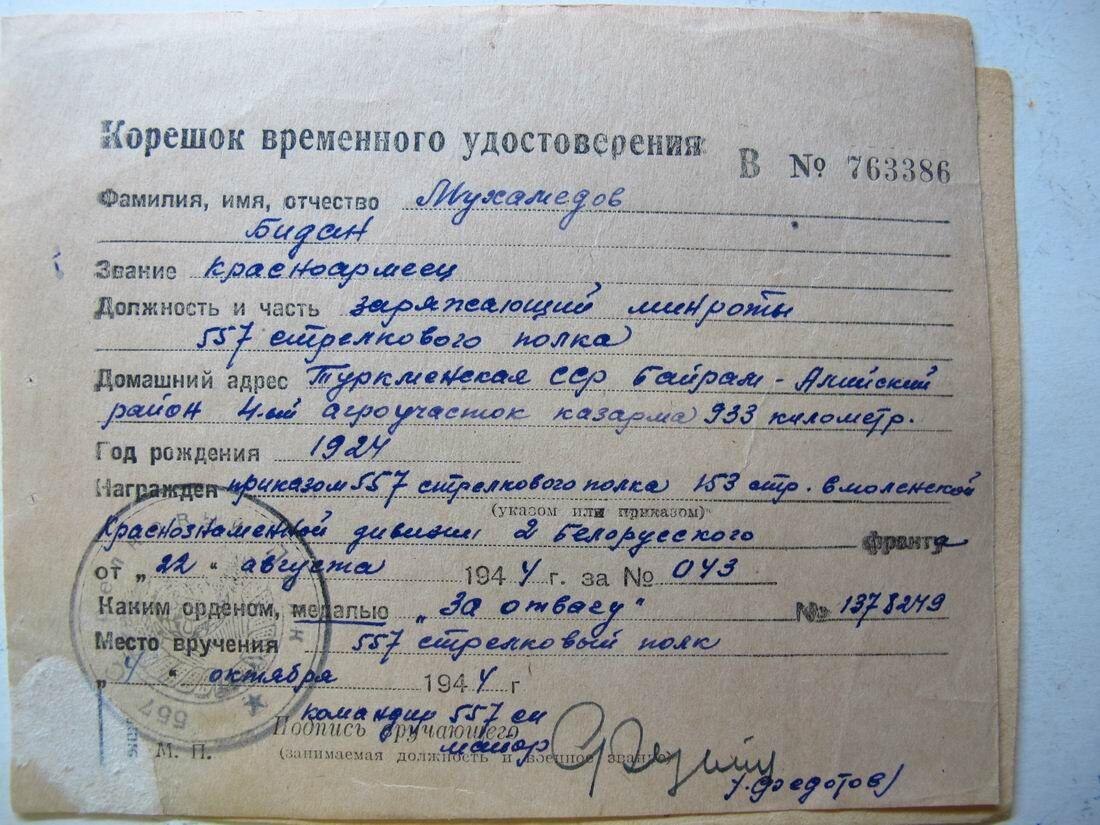 Корешок временного удостоверения
В № 763386
Фамилия, имя, отчество Мухамедов
Бидан
Звание красноармеец
Должность и часть заряжающий минроты
557 стрелкового полка
Домашний адрес Туркменская ССР Байрам-Алийский
район 4-ый агроучасток казарма 933 километр.
Год рождения 1924
Награжден приказом 557 стрелкового полка 153 стр. Смоленской
(указом или приказом)
Краснознаменной дивизии 2 Белорусского фронта
от „22“ августа 1944 г. за № 043
Каким орденом, медалью „За отвагу" № 1378249
Место вручения 557 стрелковый полк
„4“ октября 1944 г
командир 557 сп
Подпись вручающего
майор
М. П. (занимаемая должность и военное звание)
(Федотов)
557